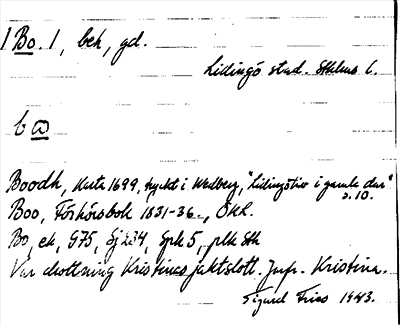 1 Bo. 1, beh, gd.
Lidingö stad. Sthlms l.
bω
Boodh, Karta 1699, tryckt i Wedberg, "Lidingöliv i gamla dar"
s. 10.
Boo, Förhörsbok 1831-36., ÖKL.
Bo, ek, G75, Sj 234, Spk 5, plk Sth
Var drottning Kristinas jaktslott. Jmfr. Kristina.
Sigurd Fries 1943.